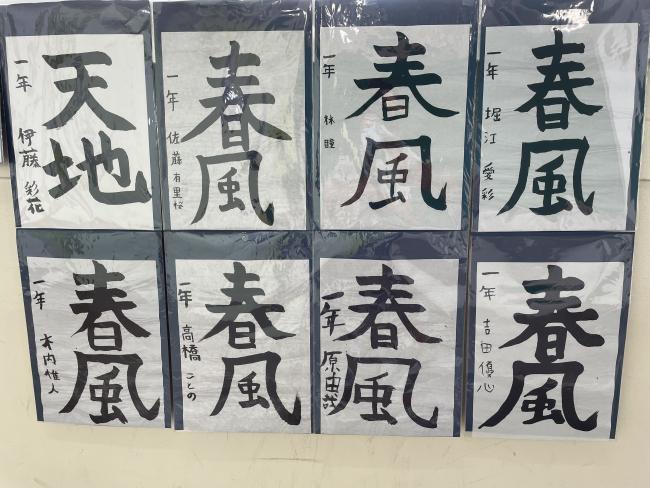 天地
一年 伊藤 彩花
春風
一年 佐藤 有里桜
春風
一年 林 瞳
春風
一年 堀江 愛彩
春風
一年 木内 惟人
春風
一年 高橋 ことの
春風
一年 原 由哉
春風
一年 吉田 優心